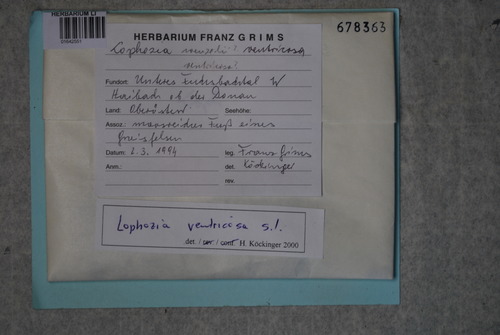 HERBARIUM LI
HERBARIUM FRANZ GRIMS
678363
Lophozia ventricosa
Fundort: Unteres W
Haibach ob der Donau
Land: Oberösterr. Seehöhe:
Assoz.: moosreicher Fuß eines
Gneisfelsen
Datum: 2.3. 1994 leg. Franz Grims
Anm.: det. Köckinger
rev.
Lophozia ventricosa s.l.
det. / rev. / conf. H. Köckinger 2000